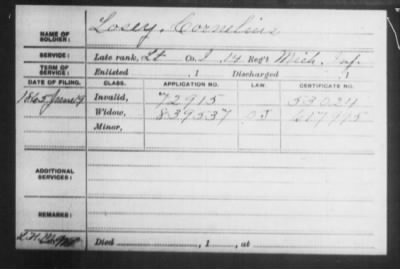 NAME OF SOLDIER: Losey, Cornelius
SERVICE: Late rank, Lt Co. I, 14 Reg't Mich. Inf.
TERM OF SERVICE: Enlisted , 1 Discharged , 1
DATE OF FILING. CLASS. APPLICATION NO. LAW CERTIFICATE NO.
1865 June 7 Invalid, 72915 53024
Widow, 839537 617995
Minor,
ADDITIONAL SERVICES:
REMARKS:
Died , 1 , at